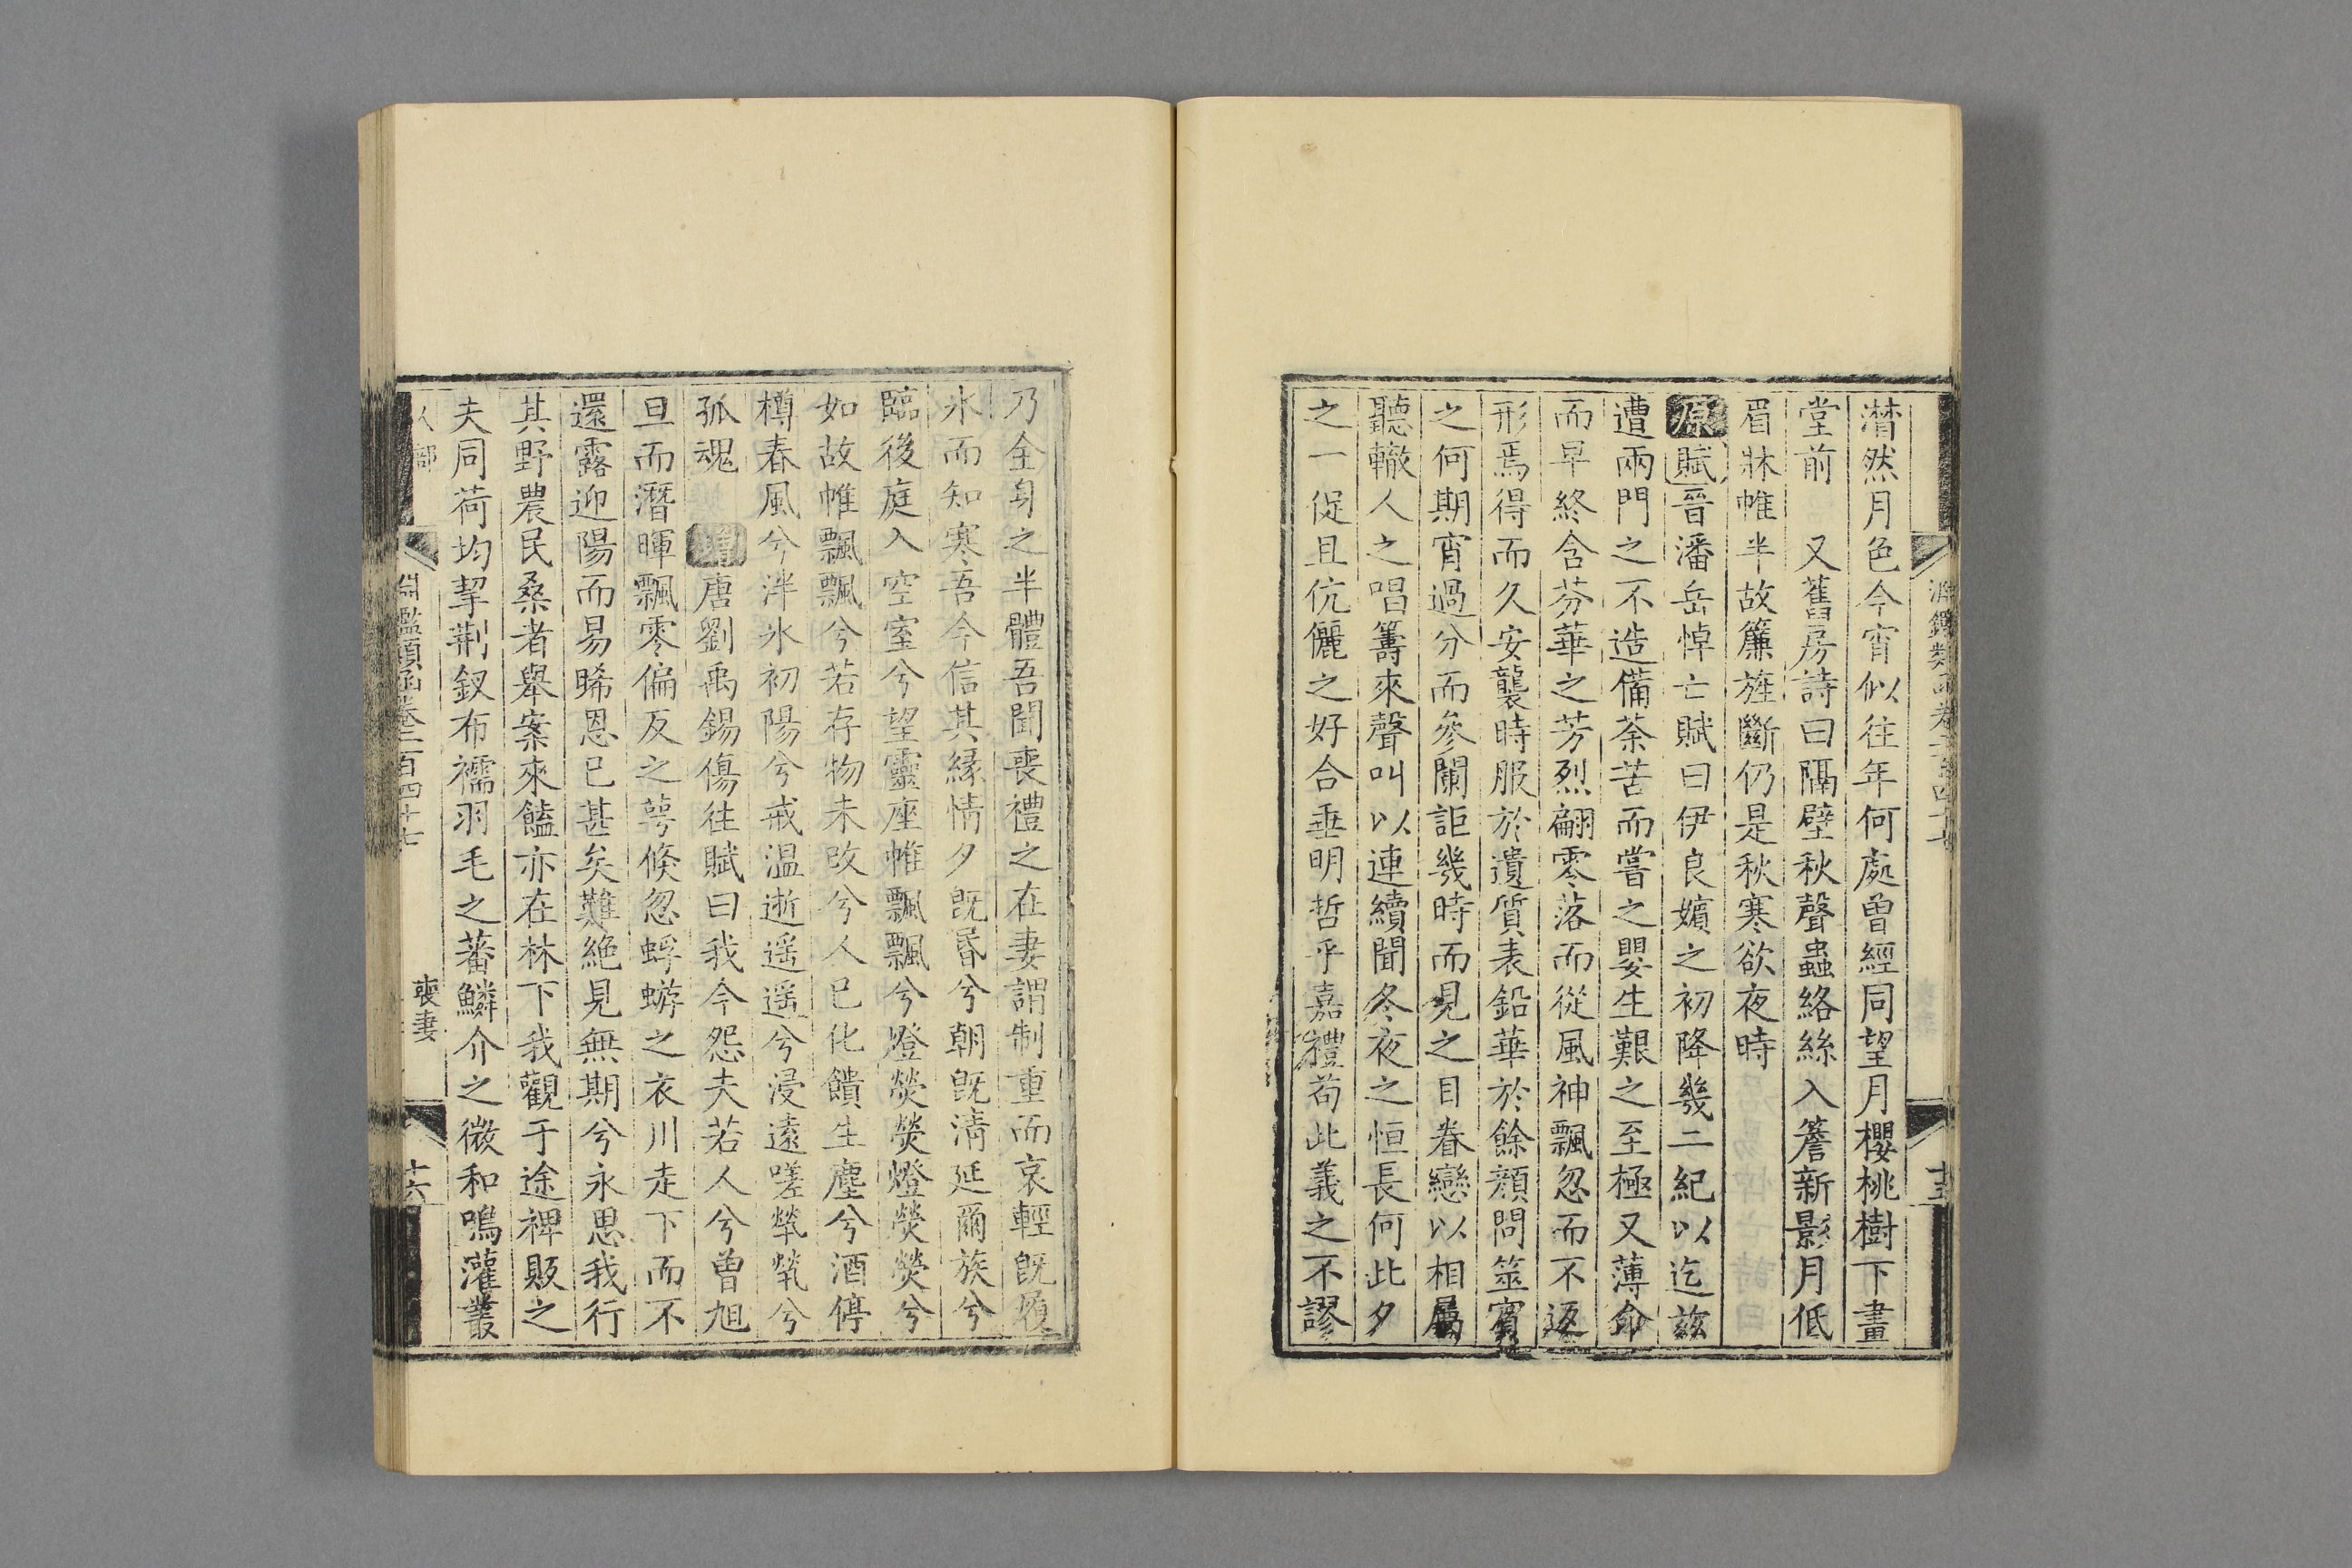 潸然月色今宵似往年何處曾經同望月櫻桃樹下畫
堂前　又舊房詩曰隔壁秋聲蟲絡絲入簷新影月低
眉牀帷半故簾旌斷仍是秋寒欲夜時
原賦晉潘岳悼亡賦曰伊良嬪之初降幾二紀以迄茲
遭兩門之不造備荼苦而嘗之嬰生艱之至極又薄命
而早終含芬華之芳烈翩零落而從風神飄忽而不返
形焉得而久安襲時服於遺質表鉛華於餘顏問筮賓
之何期宵過分而參闌詎幾時而見之目眷戀以相屬
聽轍人之唱籌來聲叫以連續聞冬夜之恒長何此夕
之一促且伉儷之好合垂明哲乎嘉禮苟此義之不謬
乃全身之半體吾聞喪禮之在妻謂制重而哀輕既履
氷而知寒吾今信其緣情夕既昏兮朝既清延爾族兮
臨後庭入空室兮望靈座帷飄飄兮燈熒熒燈熒熒兮
如故帷飄飄兮若存物未改兮人已化饋生塵兮酒停
樽春風兮泮氷初陽兮戒温逝遥遥兮浸遠嗟煢煢兮
孤魂　增唐劉禹錫傷往賦曰我今怨夫若人兮曾旭
旦而潛暉飄零偏反之萼倏忽蜉蝣之衣川走下而不
還露迎陽而易晞恩已甚矣難絶見無期兮永思我行
其野農民桑者舉案來饁亦在林下我觀于途裨販之
夫同荷均挈荆釵布襦羽毛之蕃鱗介之微和鳴灌叢
人部
淵鑑類函卷二百四十七
喪妻
十六